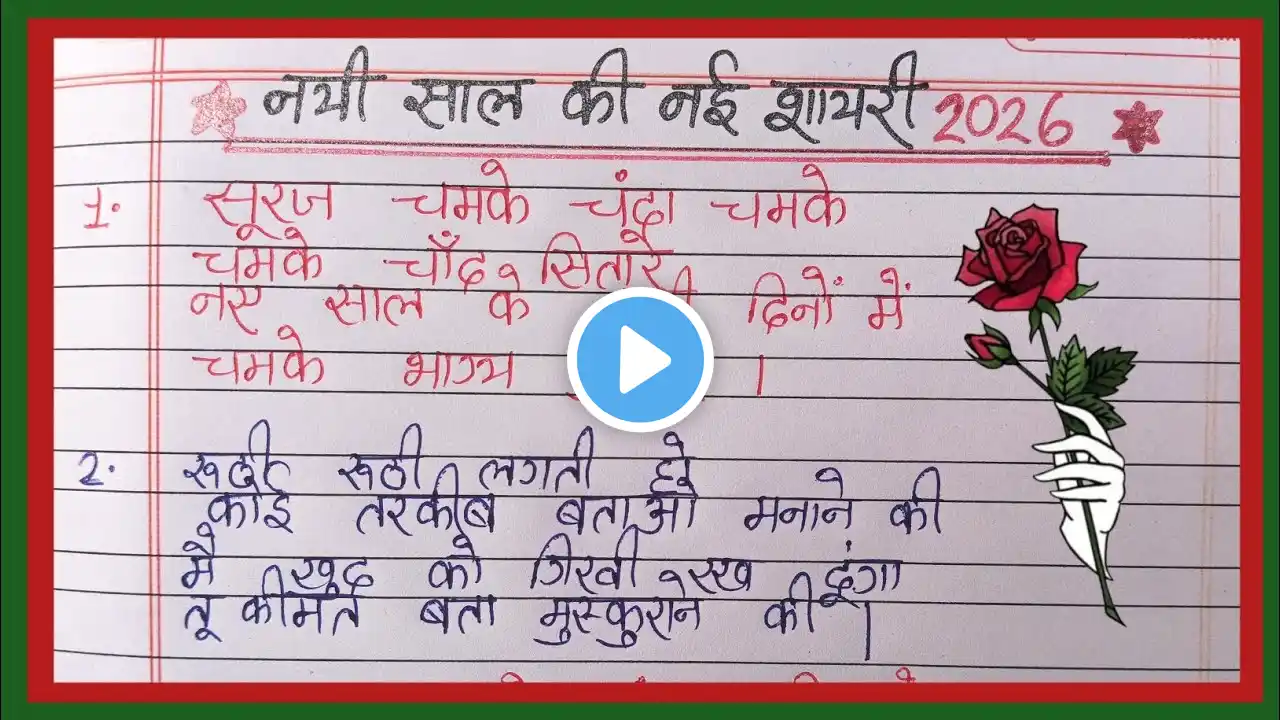 नयी साल की नई शायरी 2026
1. सूरज चमके चंदा चमके
चमके चाँद सितारे
नए साल के दिनों में
चमके भाग्य ।
2. रूठी रूठी लगती हे
कोई तरकीब बताओ मनाने की
मै खुद को गिरवी रख दूंगा
तू कीमत बता मुस्कुराने की ।